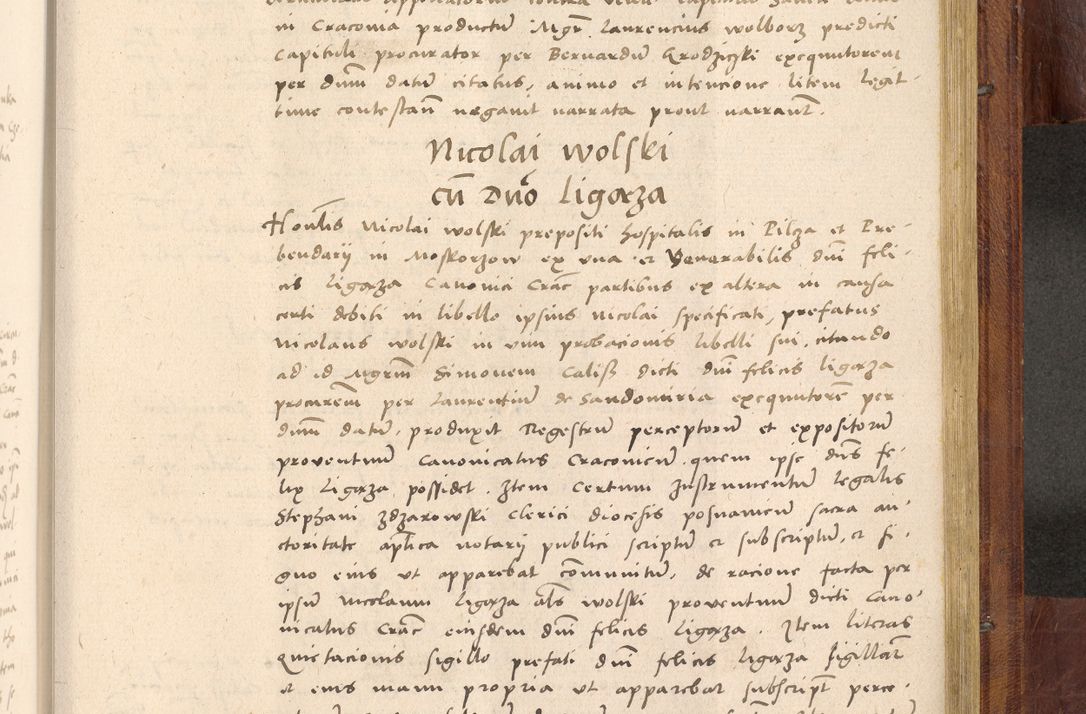 in Craconia productum Mgrm Laurencius wolborz predicti
Capituli procurator per Bernardum Grodziczki exequutorem
per dnum datum citatus, animo et intencione litem legit-
time contestan negavit narrata prout narrant.
Nicolai wolski
cum Dno Ligaza
Honlis Nicolai wolski prepositi hospitalis in Pilcza et Pre-
bendarij in Moskorzow ex una et Venerabilis dni feli-
cis Ligaza Canonici Crac partibus ex altera in causa
certi debiti in libello ipsius Nicolai specificati, prefatus
Nicolaus wolski in vim probacionis libelli sui, citando
ad id Mgrum Simonem Calisz dicti dni felicis Ligaza
procurem per Laurentium de Sandomiria exequutorem per
dnum datum, produxit Regestrum perceptorum et expositorum
proventuum Canonicatus Cracoviensis quem ipse dnus fe-
lix Ligaza possidet. Item Certum Instrumentum legalis
Stephani Zdzarowski Clerici diocesis posnaniensis sacra au-
ctoritate aplica notarij publici scriptum et subscriptum, et si-
gno eius ut apparebat communitum, de racione facta per
ipsum nicolaum Ligaza als wolski proventuum dicti Cano-
nicatus Crac eiusdem dni felicis Ligaza. Item literas
Quietacionis sigillo prefati dni felicis Ligaza sigillat
et eius manu propria ut apparebat subscript perce-